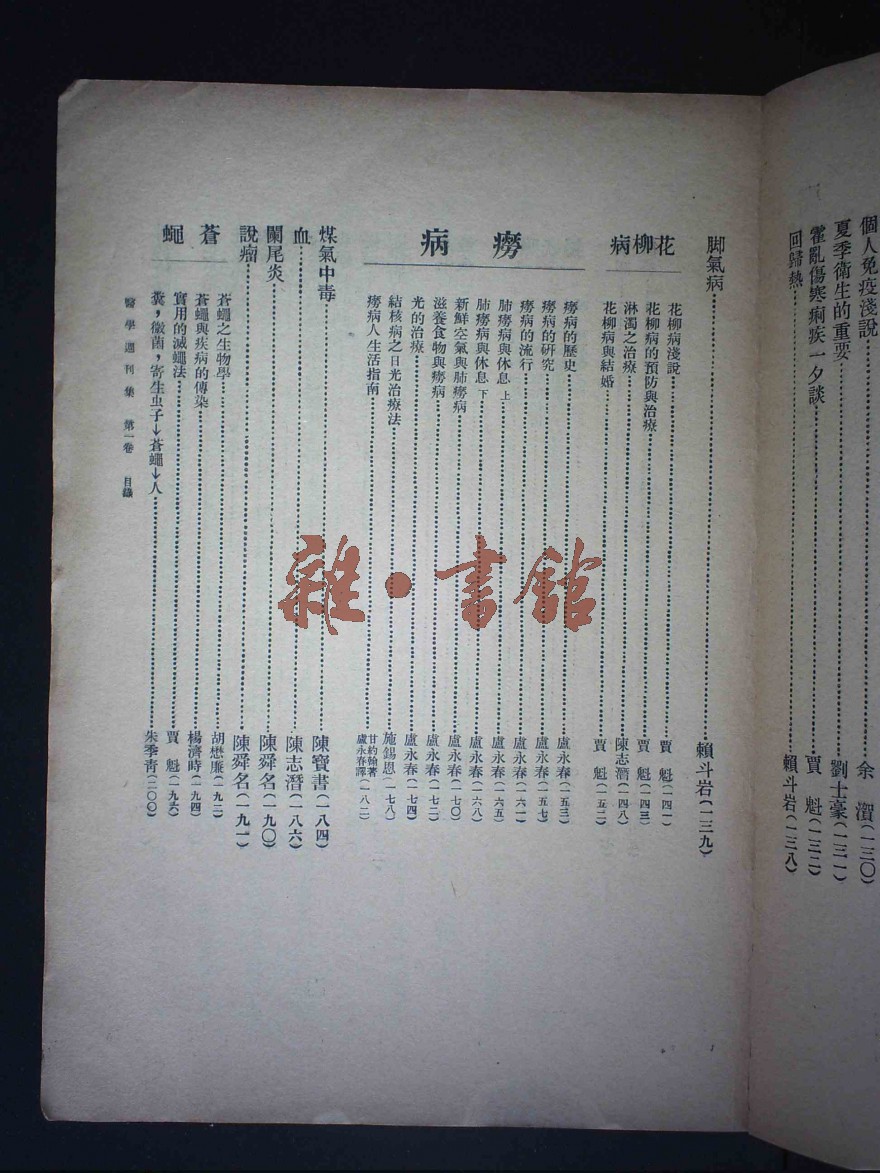 個人免疫淺說……余濱(一三〇)
夏季衛生的重要……劉士豪(一三一)
霍亂傷寒痢疾一夕談……賈魁(一三二)
回歸熱……賴斗岩(一三八)
脚氣病……賴斗岩(一三九)
花柳病
花柳病淺說……賈魁(一四一)
花柳病的預防與治療……賈魁(一四三)
淋濁之治療……陳志潛(一四八)
花柳病與結婚……賈魁(一五二)
癆病
癆病的歷史……盧永春(一五三)
癆病的研究……盧永春(一五七)
癆病的流行……盧永春(一六一)
肺癆病與休息 上……盧永春(一六五)
肺癆病與休息 下……盧永春(一六八)
新鮮空氣與肺癆病……盧永春(一七〇)
滋養食物與癆病……盧永春(一七二)
光的治療……盧永春(一七四)
結核病之日光治療法……施錫恩(一七八)
癆病人生活指南……甘約翰著 盧永春譯(一八二)
煤氣中毒……陳寶書(一八四)
血……陳志潛(一八六)
闌尾炎……陳舜名(一九〇)
說瘤……陳舜名(一九一)
蒼蠅
蒼蠅之生物學……胡懋廉(一九二)
蒼蠅與疾病的傳染……楊濟時(一九四)
實用的滅蠅法……賈魁(一九六)
糞,黴菌,寄生虫子→蒼蠅→人……朱季青(二〇〇)
醫學週刊集 第一卷 目錄
雜·書館